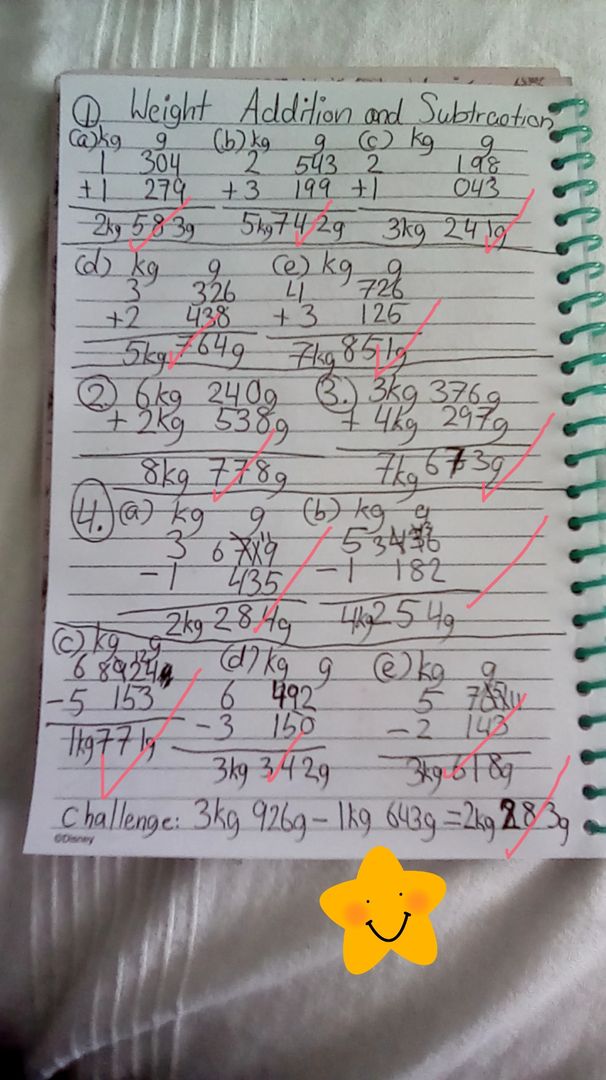 ① Weight Addition and Subtraction
(a) kg g (b) kg g (c) kg g
1 304 2 543 2 198
+1 279 +3 199 +1 043
2kg 583g 5kg 742g 3kg 241g
(d) kg g (e) kg g
3 326 4 726
+2 438 +3 125
5kg 764g 7kg 851g
② 6kg 240g 3. 3kg 376g
+ 2kg 538g + 4kg 297g
8kg 778g 7kg 673g
4. (a) kg g (b) kg g
3 719 5 436
-1 435 -1 182
2kg 284g 4kg 254g
(c) kg g (d) kg g (e) kg g
6 924 6 492 5
-5 153 -3 150 -2 143
1kg 771g 3kg 342g 3kg 618g
Challenge: 3kg 926g - 1kg 643g = 2kg 283g
©Disney